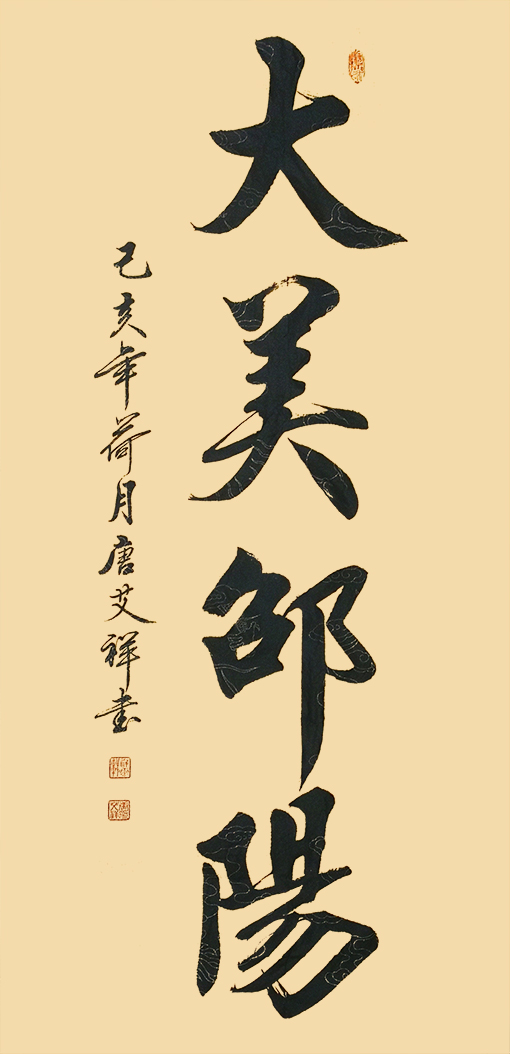 大美邵陽
己亥年荷月唐艾祥书